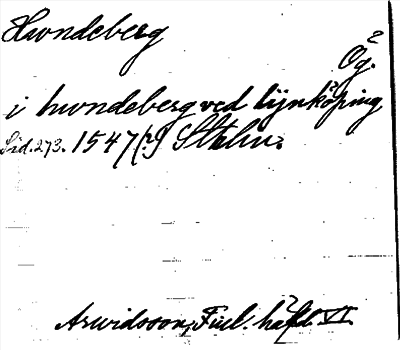 Hvndeberg
Ög.
i hvndeberg ved lijnköping
Sid. 273. 1547(?) Sthlm.
Arwidsson, Finl. häfd. VI.